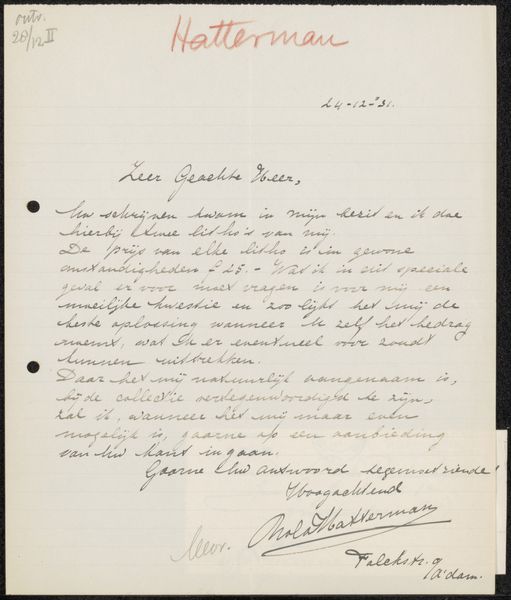 ontv.
28/12 II
Hatterman
24-12-'31.
Zeer Geachte Heer,
Uw schrijven kwam in mijn bezit en ik doe
hierbij twee litho's van mij.
De prijs van elke litho is in gewone
omstandigheden ƒ 25.- Wat ik in dit speciale
geval er voor moet vragen is voor mij een
moeilijke kwestie en zoo lijkt het mij de
beste oplossing wanneer U zelf het bedrag
noemt, wat U er eventueel voor zoudt
kunnen uittrekken.
Daar het mij natuurlijk aangenaam is,
bij de collectie vertegenwoordigd te zijn,
zal ik, wanneer het mij maar even
mogelijk is, gaarne op een aanbieding
van Uw kant ingaan.
Gaarne Uw antwoord tegemoetziende
Hoogachtend
Nola Hatterman
Mevr.
Falckstr. 9
A'dam.